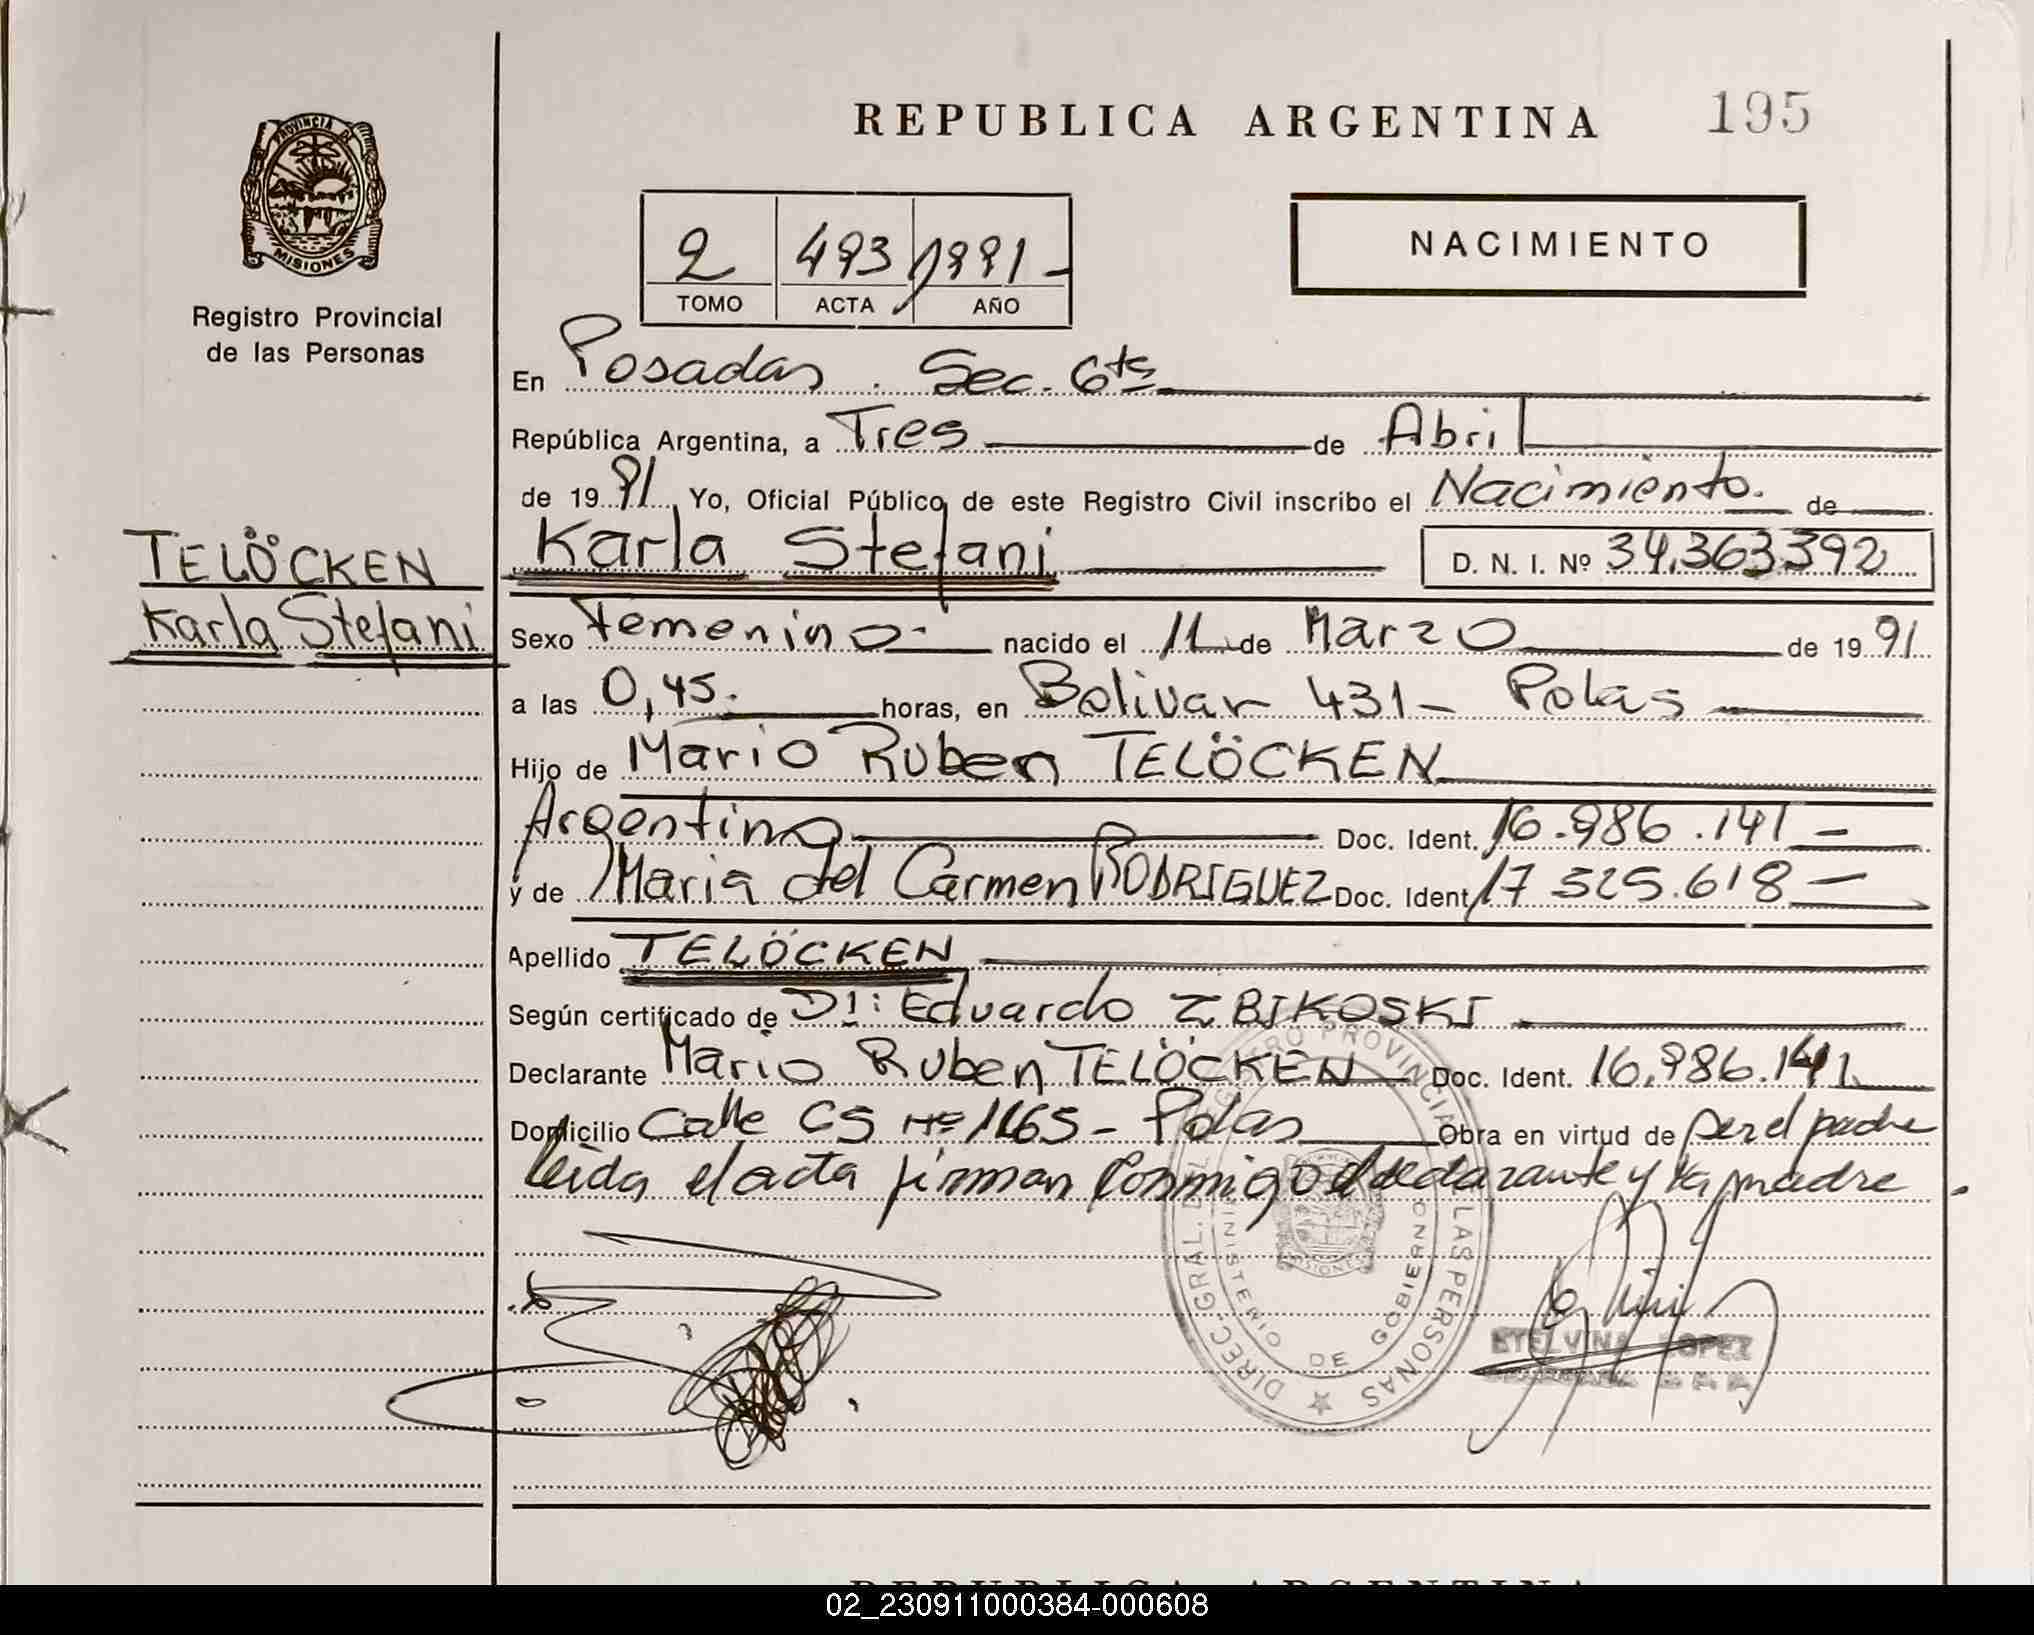 REPUBLICA ARGENTINA 195
PROVINCIA DE
MISIONES
Registro Provincial
de las Personas
2 493 1991-
TOMO ACTA AÑO
NACIMIENTO
En Posadas. Sec. 6ta
República Argentina, a Tres de Abril
de 1991 Yo, Oficial Público de este Registro Civil inscribo el Nacimiento. de
TELÖCKEN
Karla Stefani
Karla Stefani D. N. I. Nº 34.363.392
Sexo Femenino.- nacido el 11 de Marzo de 1991
a las 0,45. horas, en Bolivar 431- Pdas
Hijo de Mario Ruben TELÖCKEN
Argentina Doc. Ident. 16.986.141-
y de Maria del Carmen RODRIGUEZ Doc. Ident. 17 525.618-
Apellido TELÖCKEN
Según certificado de Dr: Eduardo ZBIKOSKI
Declarante Mario Ruben TELÖCKEN Doc. Ident. 16.986.141
Domicilio Calle CS Nº 1165- Pdas Obra en virtud de ser el padre
leida el acta firman conmigo el declarante y la madre.
DIREC-GRAL. DEL REGISTRO PROVINCIAL DE LAS PERSONAS
MINISTERIO DE GOBIERNO
MISIONES
ETELVINA LOPEZ
REPUBLICA ARGENTINA
02_230911000384-000608